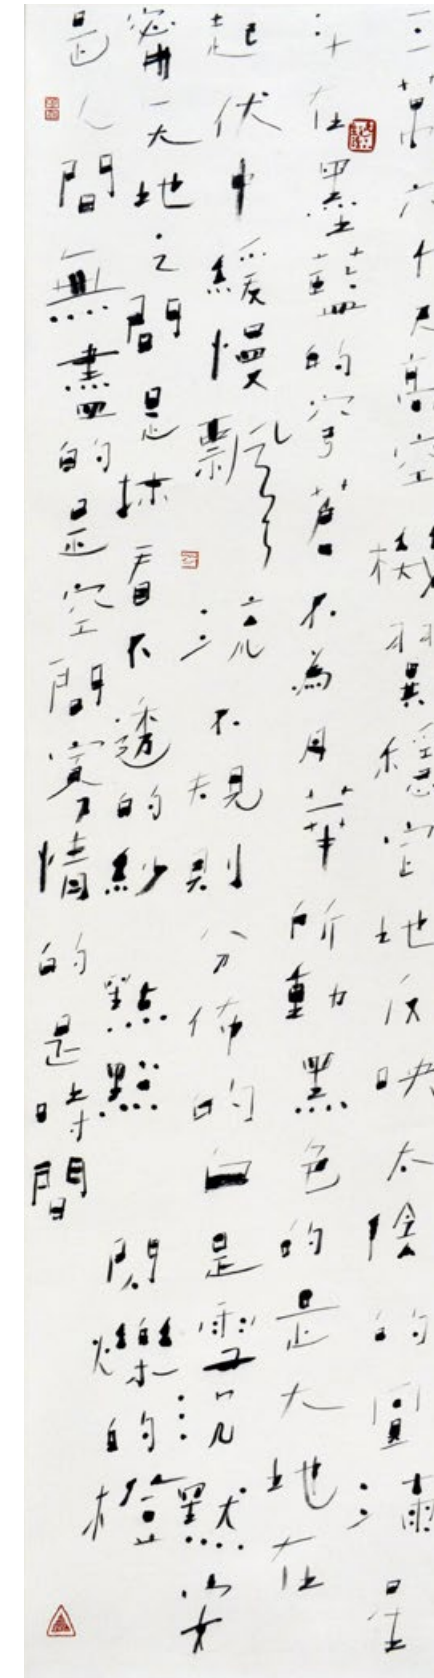 三萬六千尺高空機翼穩定地反映太陰的圓滿星
斗在墨藍的穹蒼不為月華所動黑色的是大地在
起伏中緩慢飄流不規則分佈的白是雲沉默安
甯天地之間是抹看不透的紗點點閃爍的橙
是人間無盡的是空間寡情的是時間